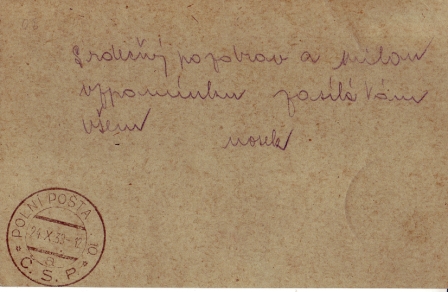 Srdečný pozdrav a milou
vzpomínku zasílá Vám
všem nosek
POLNÍ POSTA 10
24.X.38-12
a
Č.S.P.